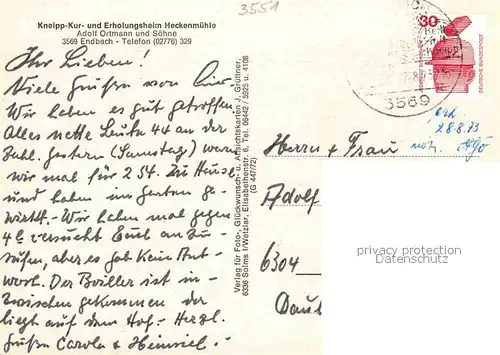 3551
Kneipp-Kur- und Erholungsheim Heckenmühle
Adolf Ortmann und Söhne
3569 Endbach - Telefon (02776) 329
Ihr Lieben!
Viele Grüße von hier
Wir haben es gut getroffen
Alles nette Leute 44 an der
Zahl. Gestern (Samstag) waren
wir mal für 2 St. zu Hause
und haben im Garten ge-
wirkt. - Wir haben mal gegen
4h versucht Euch anzu-
rufen, aber es gab kein Ant-
wort. Der Boiler ist in-
zwischen gekommen der
liegt auf dem Hof. - Herzl.
Grüße Carola + Heinzel. -
Verlag für Foto-, Glückwunsch- u. Ansichtskarten J. Grüttner,
6336 Solms I/Wetzlar, Elisabethenstr. 6, Tel. 06442 / 5925 u. 4108
(G 447/72)
30
DEUTSCHE BUNDESPOST
3569
28.8.73
Herrn + Frau
Adolf
6304
privacy protection